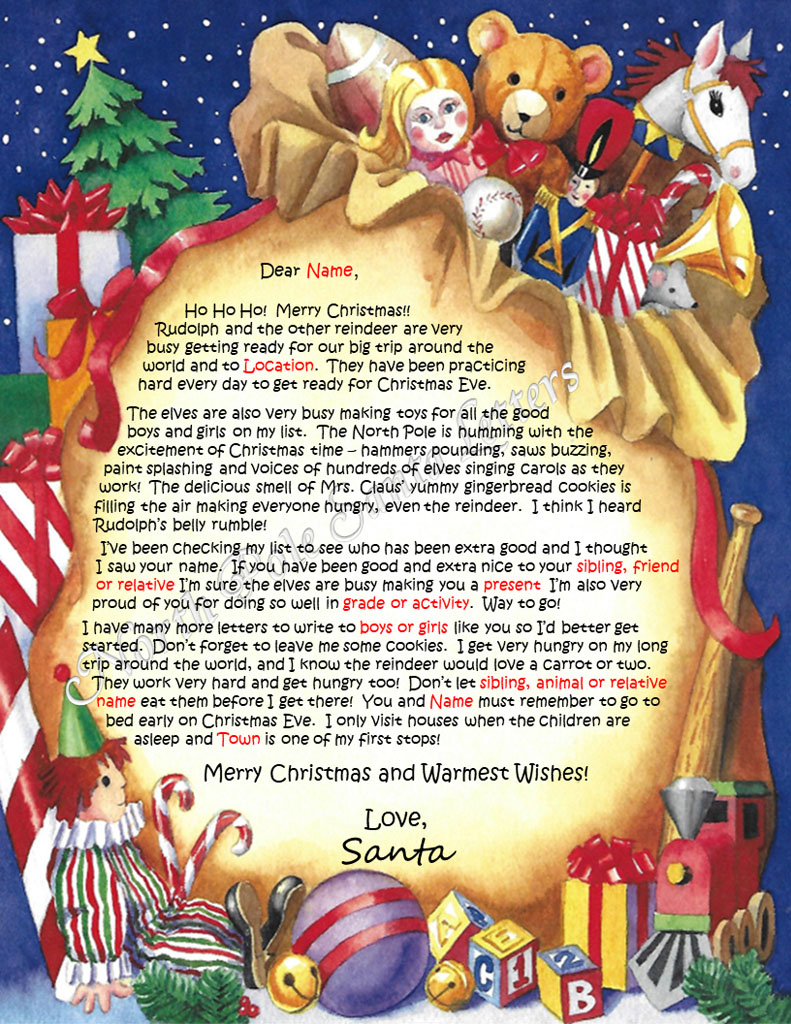 Dear Name,
Ho Ho Ho! Merry Christmas!!
Rudolph and the other reindeer are very
busy getting ready for our big trip around the
world and to Location. They have been practicing
hard every day to get ready for Christmas Eve.
The elves are also very busy making toys for all the good
boys and girls on my list. The North Pole is humming with the
excitement of Christmas time – hammers pounding, saws buzzing,
paint splashing and voices of hundreds of elves singing carols as they
work! The delicious smell of Mrs. Claus' yummy gingerbread cookies is
filling the air making everyone hungry, even the reindeer. I think I heard
Rudolph's belly rumble!
I've been checking my list to see who has been extra good and I thought
I saw your name. If you have been good and extra nice to your sibling, friend
or relative I'm sure the elves are busy making you a present I'm also very
proud of you for doing so well in grade or activity. Way to go!
I have many more letters to write to boys or girls like you so I'd better get
started. Don't forget to leave me some cookies. I get very hungry on my long
trip around the world, and I know the reindeer would love a carrot or two.
They work very hard and get hungry too! Don't let sibling, animal or relative
name eat them before I get there! You and Name must remember to go to
bed early on Christmas Eve. I only visit houses when the children are
asleep and Town is one of my first stops!
Merry Christmas and Warmest Wishes!
Love,
Santa
© North Pole Santa Letters
A C E
C 1 2
B